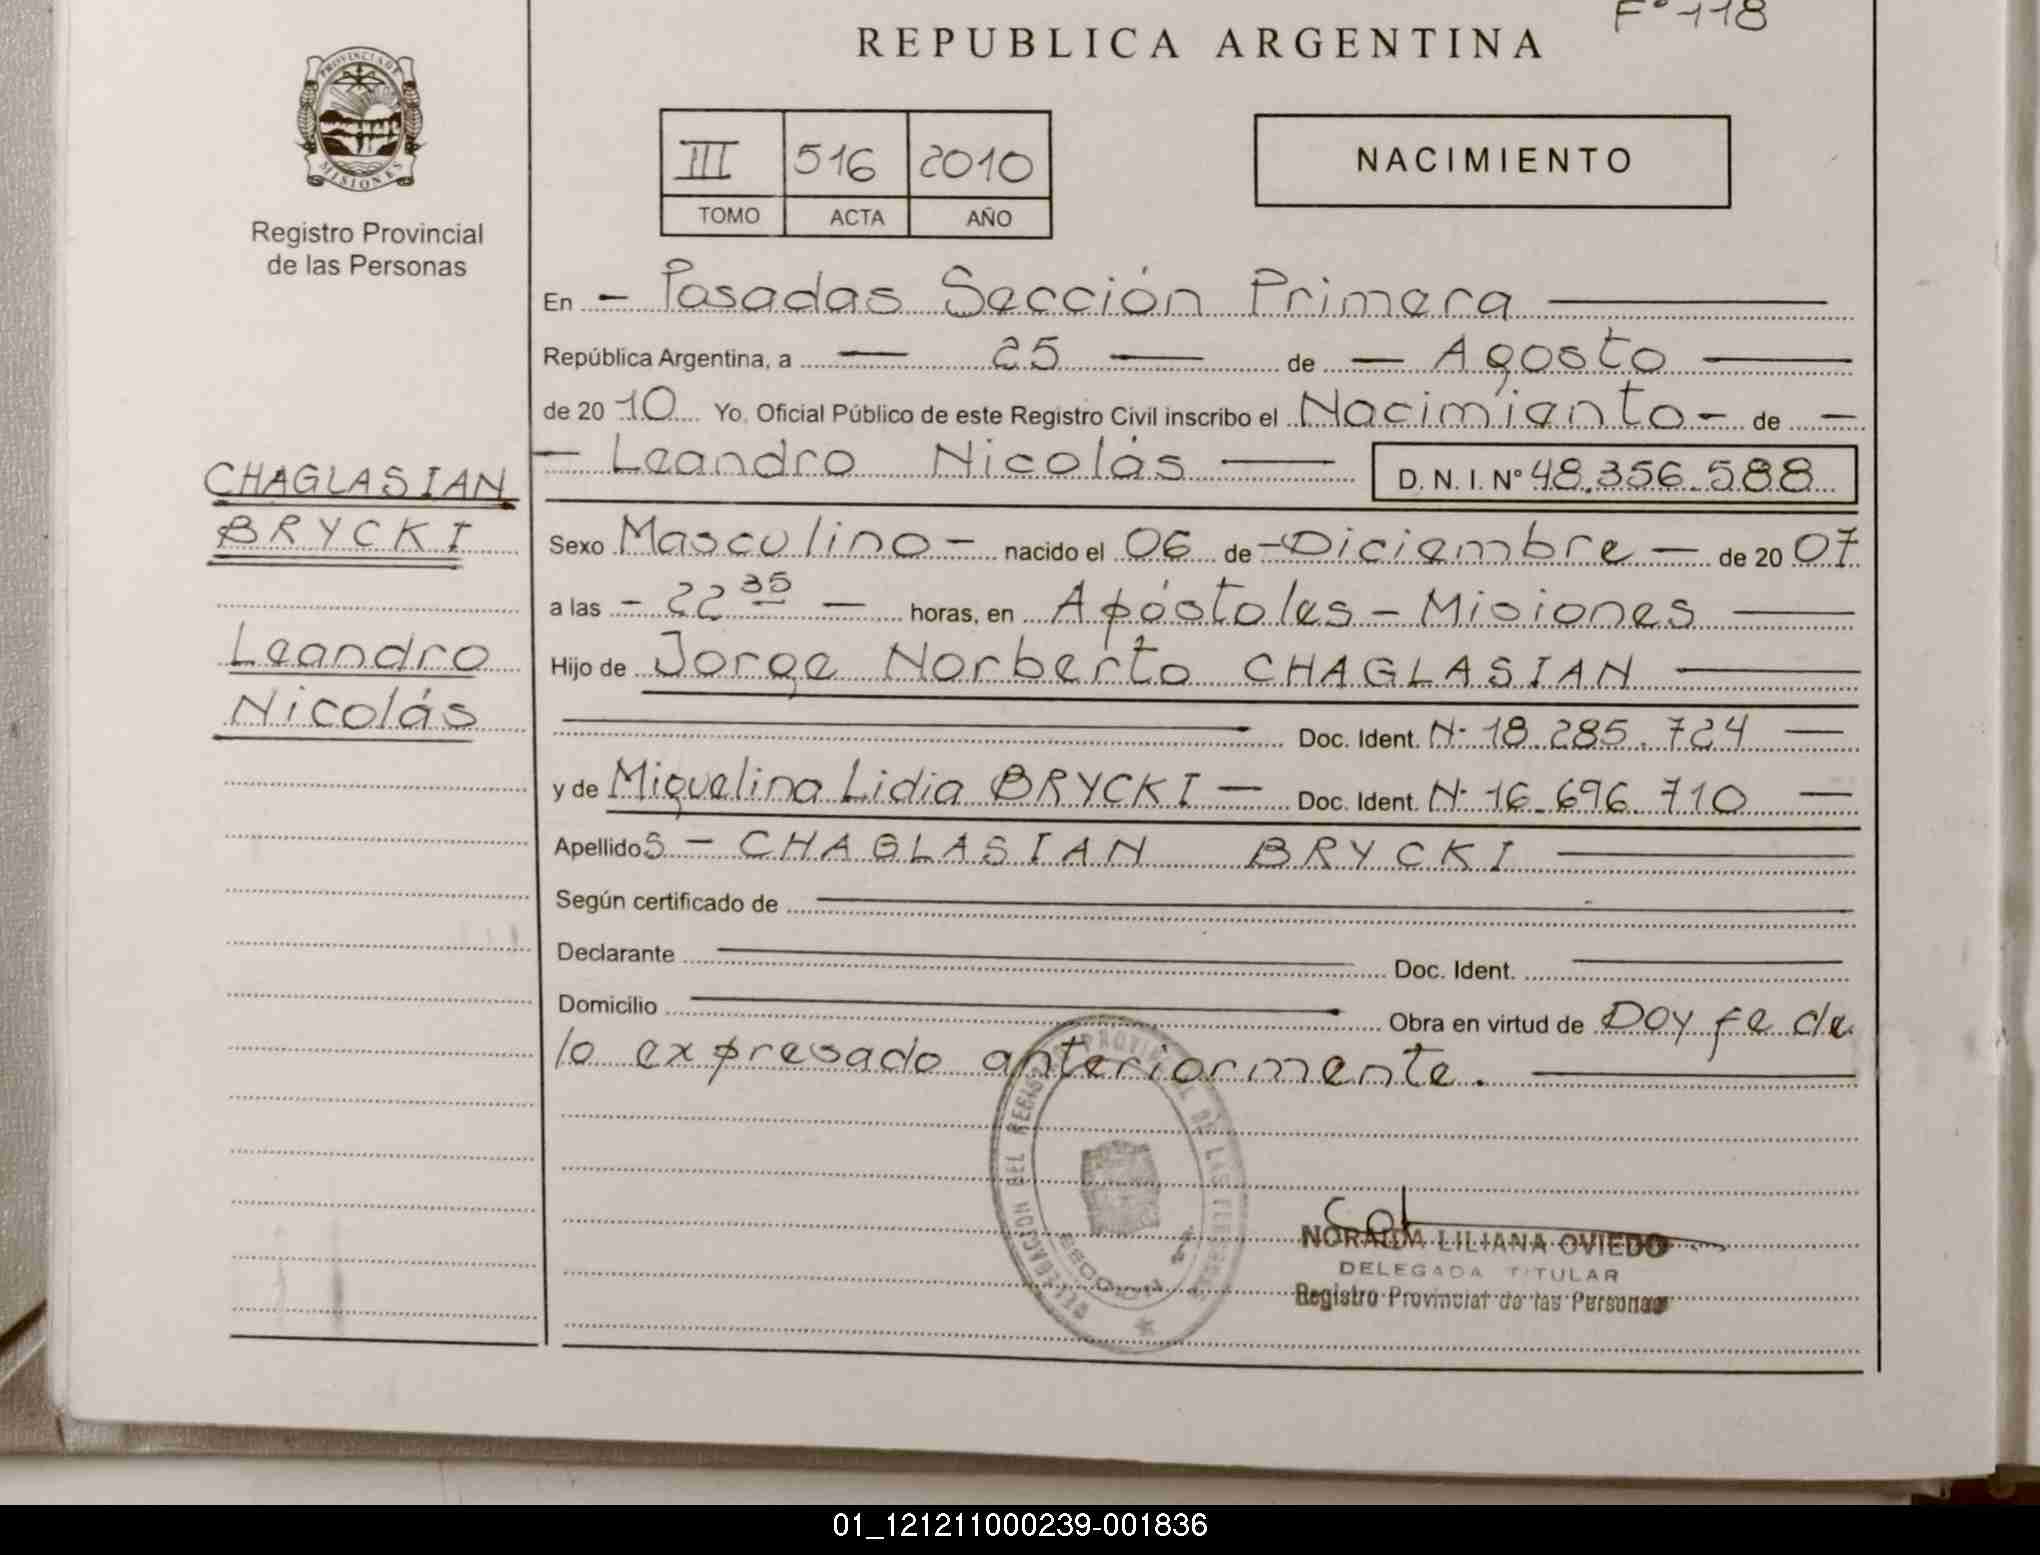 F° 118
REPUBLICA ARGENTINA
PROVINCIA DE
MISIONES
Registro Provincial
de las Personas
III 516 2010
TOMO ACTA AÑO
NACIMIENTO
En - Posadas Sección Primera
República Argentina, a 25 de Agosto
de 2010 Yo, Oficial Público de este Registro Civil inscribo el Nacimiento - de -
- Leandro Nicolás D. N. I. Nº 48.356.588
CHAGLASIAN
BRYCKI
Leandro
Nicolás
Sexo Masculino - nacido el 06 de - Diciembre - de 20 07
a las - 22 35 - horas, en Apóstoles - Misiones
Hijo de Jorge Norberto CHAGLASIAN
Doc. Ident. N· 18.285.724
y de Miguelina Lidia BRYCKI - Doc. Ident. N· 16.696.710
Apellidos - CHAGLASIAN BRYCKI
Según certificado de
Declarante Doc. Ident.
Domicilio Obra en virtud de Doy fe de
lo expresado anteriormente.
DELEGACION DEL REGISTRO PROVINCIAL DE LAS PERSONAS
SECCION 1ª
NORAIDA LILIANA OVIEDO
DELEGADA TITULAR
Registro Provincial de las Personas
01_121211000239-001836